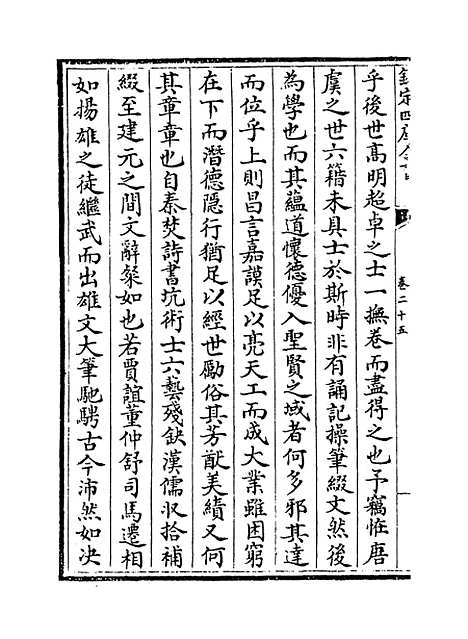 欽定四庫全書
卷二十五
乎後世髙明超卓之士一撫卷而盡得之也予竊恠唐
虞之世六籍未具士於斯時非有誦記操筆綴文然後
為學也而其藴道懷德優入聖賢之域者何多邪其達
而位乎上則昌言嘉謨足以亮天工而成大業雖困窮
在下而潛德隱行猶足以經世勵俗其芳猷美績又何
其章章也自秦焚詩書坑術士六藝殘缺漢儒収拾補
綴至建元之間文辭粲如也若賈誼董仲舒司馬遷相
如揚雄之徒繼武而出雄文大筆馳騁古今沛然如决